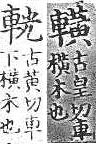 𨎩古皇切車
橫木也
輄古黃切車
下橫木也